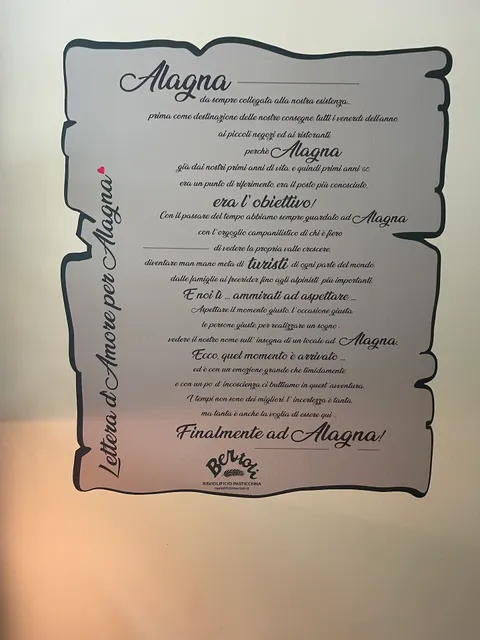 Lettera d'Amore per Alagna
Alagna
da sempre collegata alla nostra esistenza...
prima come destinazione delle nostre consegne, tutti i venerdì dell'anno,
ai piccoli negozi ed ai ristoranti.
perchè Alagna
già dai nostri primi anni di vita, e quindi primi anni
era un punto di riferimento, era il posto più conosciuto,
era l'obiettivo!
Con il passare del tempo abbiamo sempre guardato ad Alagna
con l'orgoglio campanilistico di chi è fiero
di vedere la propria valle crescere,
diventare man mano meta di turisti di ogni parte del mondo.
dalle famiglie ai freerider fino agli alpinisti più importanti.
E noi lì ... ammirati ad aspettare ...
Aspettare il momento giusto, l'occasione giusta,
le persone giuste, per realizzare un sogno
vedere il nostro nome sull'insegna di un locale ad Alagna.
Ecco, quel momento è arrivato ...
ed è con un emozione grande che timidamente
e con un po' d'incoscienza ci buttiamo in quest'avventura.
I tempi non sono dei migliori l'incertezza è tanta,
ma tanta è anche la voglia di essere qui ..
Finalmente ad Alagna!
Bertoli
RAVIOLIFICIO PASTICCERIA